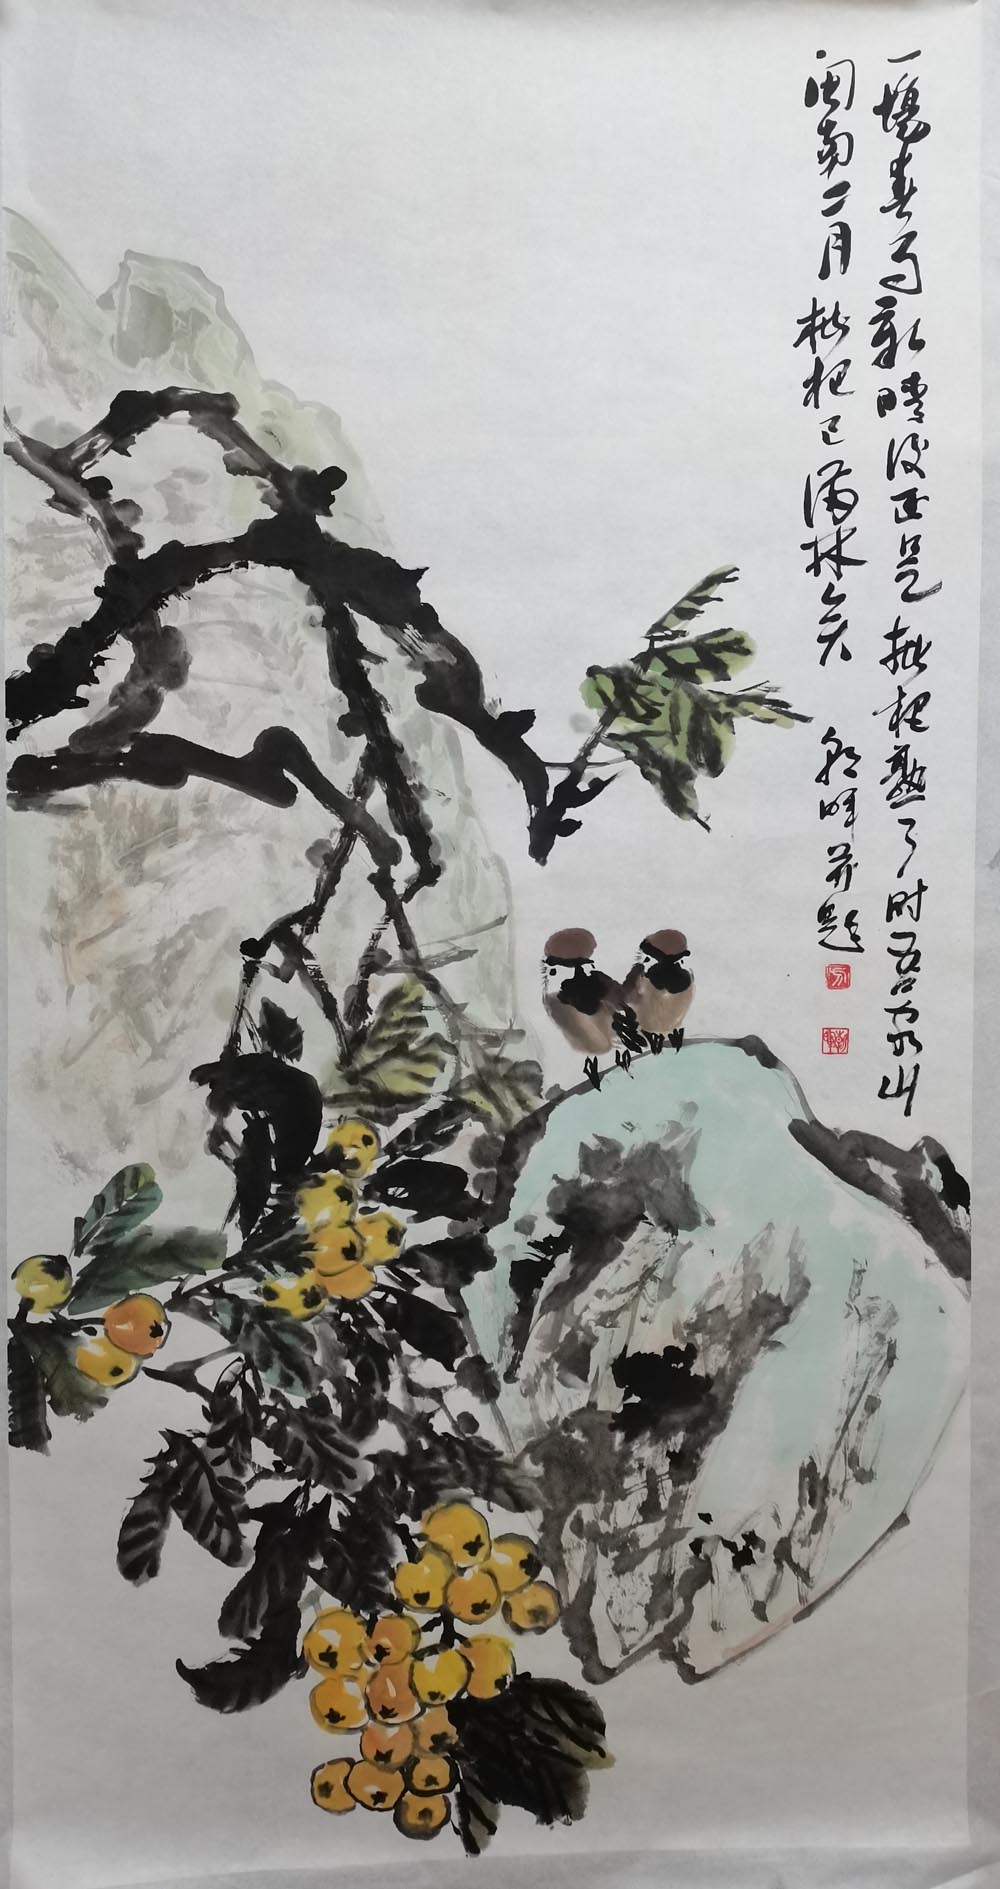 一场春雨新晴后正是枇杷熟了时吾家山
闽南二月枇杷已满林矣
朝晖并题